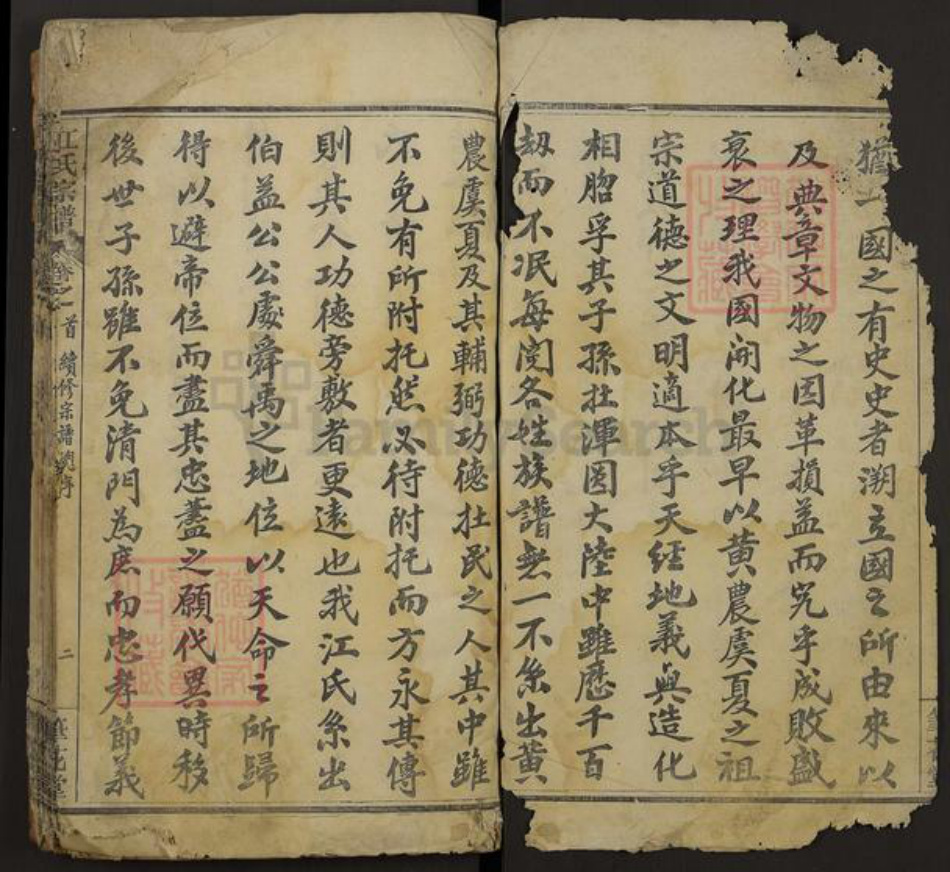 猶國之有史史者溯立國之所由來以
及典章文物之因革損益而究乎成敗盛
衰之理我國開化最早以黃農虞夏之祖
宗道德之文明適本乎天經地義與造化
相脗孚其子孫在渾圓大陸中雖歷千百
刼而不泯每閱各姓族譜無一不系出黃
農虞夏及其輔弼功德在民之人其中雖
不免有所附托然必待附托而方永其傳
則其人功德旁敷者更遠也我江氏系出
伯益公公處舜禹之地位以天命之所歸
得以避帝位而盡其忠藎之願代異時移
後世子孫雖不免清門為庶而忠孝節義
江氏宗譜 卷之首 續修宗譜序 二
FamilySearch